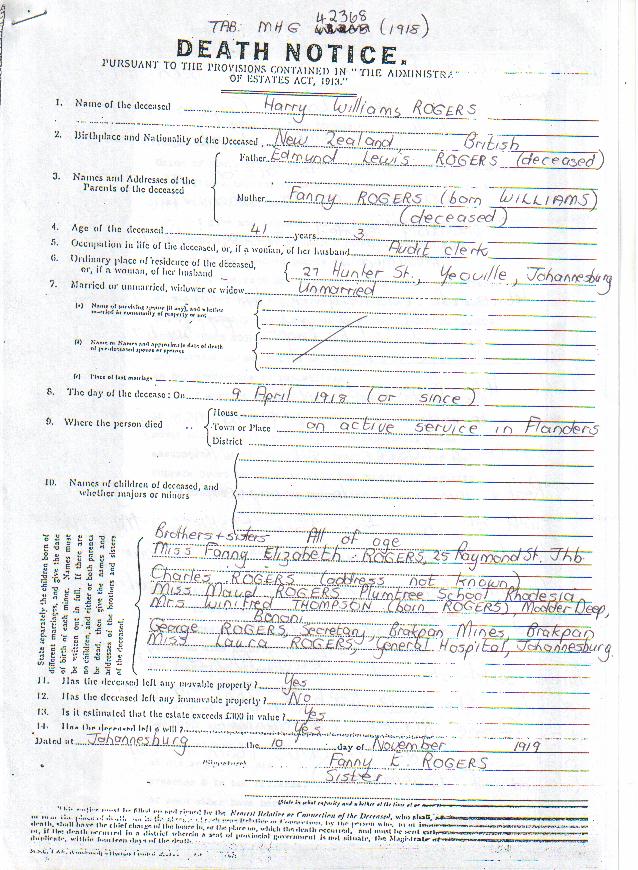 TAB: MHG 42368 (1918)
DEATH NOTICE.
PURSUANT TO THE PROVISIONS CONTAINED IN "THE ADMINISTRA
OF ESTATES ACT, 1913."
1. Name of the deceased Harry Williams ROGERS
2. Birthplace and Nationality of the Deceased New Zealand, British
3. Names and Addresses of the Parents of the deceased
Father Edmund Lewis ROGERS (deceased)
Mother Fanny ROGERS (born WILLIAMS)
(deceased)
4. Age of the deceased 41 years 3
5. Occupation in life of the deceased, or, if a woman, of her husband Audit clerk
6. Ordinary place of residence of the deceased, or, if a woman, of her husband 27 Hunter St., Yeoville, Johannesburg
7. Married or unmarried, widower or widow Unmarried
(a) Name of surviving spouse (if any), and whether
married in community of property or not
(b) Name or Names and approximate date of death
of predeceased spouse or spouses
(c) Place of last marriage
8. The day of the decease: On 9 April 1918 (or since)
9. Where the person died
House
Town or Place on active service in Flanders
District
10. Names of children of deceased, and
whether majors or minors
State separately the children born of
different marriages, and give the date
of birth of each minor. Names must
be written out in full. If there are
no children, and either or both parents
be dead, then give the names and
addresses of the brothers and sisters
of the deceased.
Brothers + sisters All of age
Miss Fanny Elizabeth ROGERS, 25 Raymond St. Jhb
Charles ROGERS (address not known)
Miss Maud ROGERS Plumtree School Rhodesia
Mrs Winifred THOMPSON (born ROGERS), Modder Deep,
Benoni
George ROGERS, Secretary, Brakpan Mines Brakpan
Miss Laura ROGERS, General Hospital, Johannesburg.
11. Has the deceased left any movable property? Yes
12. Has the deceased left any immovable property? No
13. Is it estimated that the estate exceeds £300 in value? Yes
14. Has the deceased left a will? Yes
Dated at Johannesburg the 10 day of November 1919
Fanny E. ROGERS
Sister
(State in what capacity and whether at the time of
This notice must be filled up and signed by the Nearest Relative or Connection of the Deceased, who shall
death, shall have the chief charge of the house in, or the place on, which the death occurred, and must be sent
or, if the death occurred in a district wherein a seat of provincial government is not situate, the Magistrate of
duplicate, within fourteen days of the death.